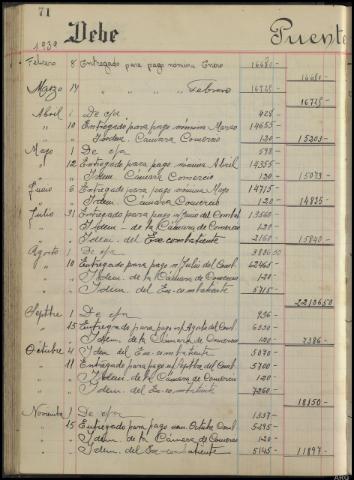 71
1939
Debe
Puente
Febrero 8 Entregado para pago nómina Enero 16680-
16680-
Marzo 14 " " " " Febrero 16725-
16725-
Abril 1 De c/a 428-
" 10 Entregado para pago nómina Marzo 14655-
" " Idem. Cámara Comercio 120- 15203-
Mayo 1 De c/a 598-
" 12 Entregado para pago nómina Abril 14355-
" " Idem. Cámara Comercio 120- 15073-
Junio 6 Entregado para pago nómina Mayo 14715-
" " Idem. Cámara Comercio 120-
Julio 31 Entregado para pago n/ Junio del Combat 13560-
" " Idem - de la Cámara de Comercio 120-
" " Idem. del Ex-combatiente 2160- 15840-
Agosto 1 De c/a
" 10 Entregado para pago n/ Julio del
" " Idem. de la Cámara de Comercio 120-
" " Idem. del Ex-combatiente 5715-
Septbre 1 De c/a 936-
" 15 Entregado para pago n/ Agosto del
" " Idem. de la Cámara de Comercio 120- 7386-
Octubre 4 Idem del Ex-combatiente 5070-
" 11 Entregado para pago n/ Septbre del 5700-
" " Idem. de la Cámara de Comercio 120-
" " Idem. del Ex-combatiente 7260-
18150-
Noviembre 1 De c/a 1337-
" 15 Entregado para pago nom. Octubre 5295-
" " Idem. de la Cámara de Comercio 120-
" " Idem. del Ex-combatiente 5145- 11897-